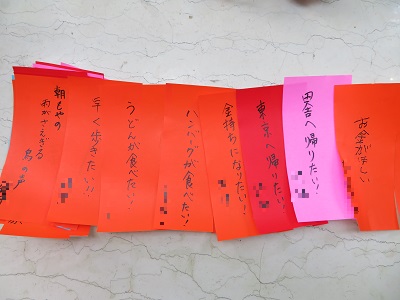 お金がほしい
田舎へ帰りたい!
東京へ帰りたい!
金持ちになりたい!
ハンバーグが食べたい!
うどんが食べたい!
早く歩きたい!!
朝もやの
鳥の声